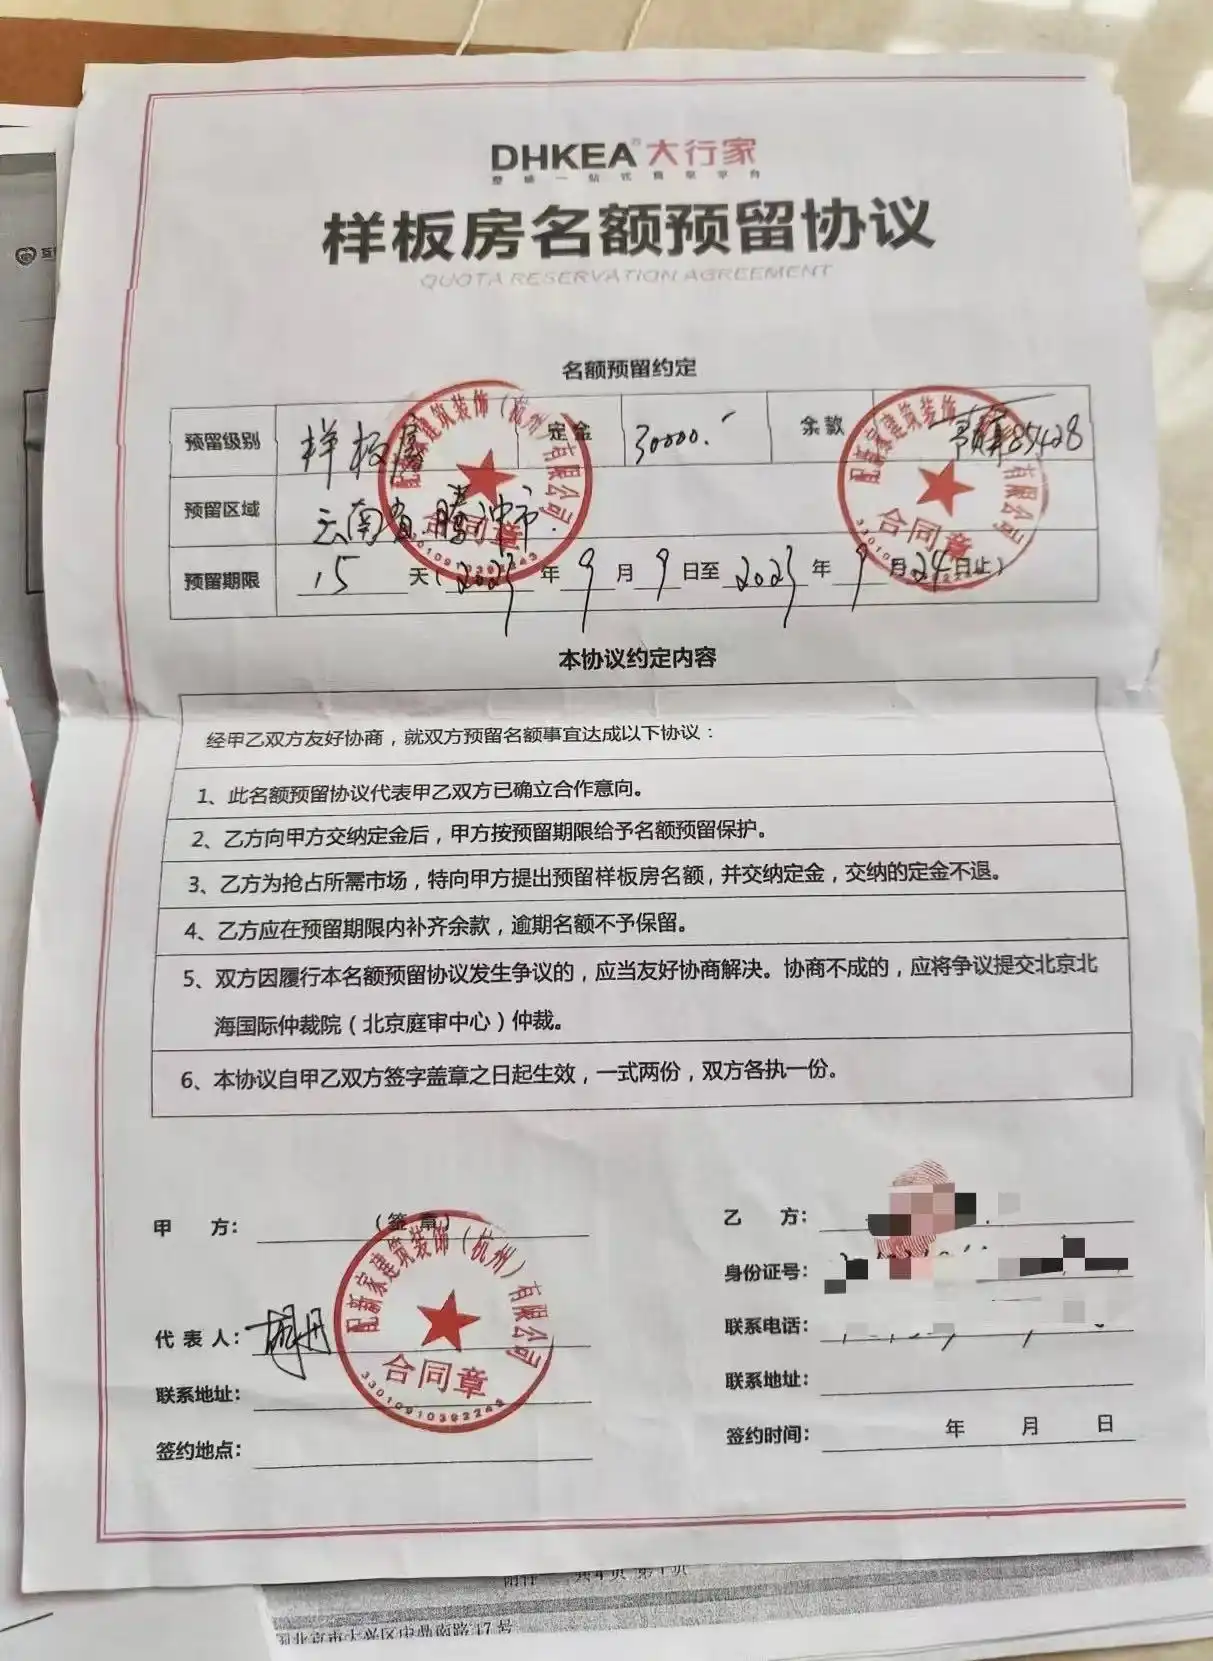 DHKEA®大行家
整装一站式直采平台
样板房名额预留协议
QUOTA RESERVATION AGREEMENT
名额预留约定
预留级别 样板房 定金 30000.- 余款 85428
预留区域 云南省腾冲市.
预留期限 15 天(2023年9月9日至2023年9月24日止)
配新家建筑装饰（杭州）有限公司
合同章
配新家建筑装饰（杭州）有限公司
合同章
本协议约定内容
经甲乙双方友好协商，就双方预留名额事宜达成以下协议：
1、此名额预留协议代表甲乙双方已确立合作意向。
2、乙方向甲方交纳定金后，甲方按预留期限给予名额预留保护。
3、乙方为抢占所需市场，特向甲方提出预留样板房名额，并交纳定金，交纳的定金不退。
4、乙方应在预留期限内补齐余款，逾期名额不予保留。
5、双方因履行本名额预留协议发生争议的，应当友好协商解决。协商不成的，应将争议提交北京北
海国际仲裁院（北京庭审中心）仲裁。
6、本协议自甲乙双方签字盖章之日起生效，一式两份，双方各执一份。
甲 方： （签 章）
代 表 人：
联系地址：
签约地点：
配新家建筑装饰（杭州）有限公司
合同章
33010910392243
乙 方：
身份证号：
联系电话：
联系地址：
签约时间： 年 月 日